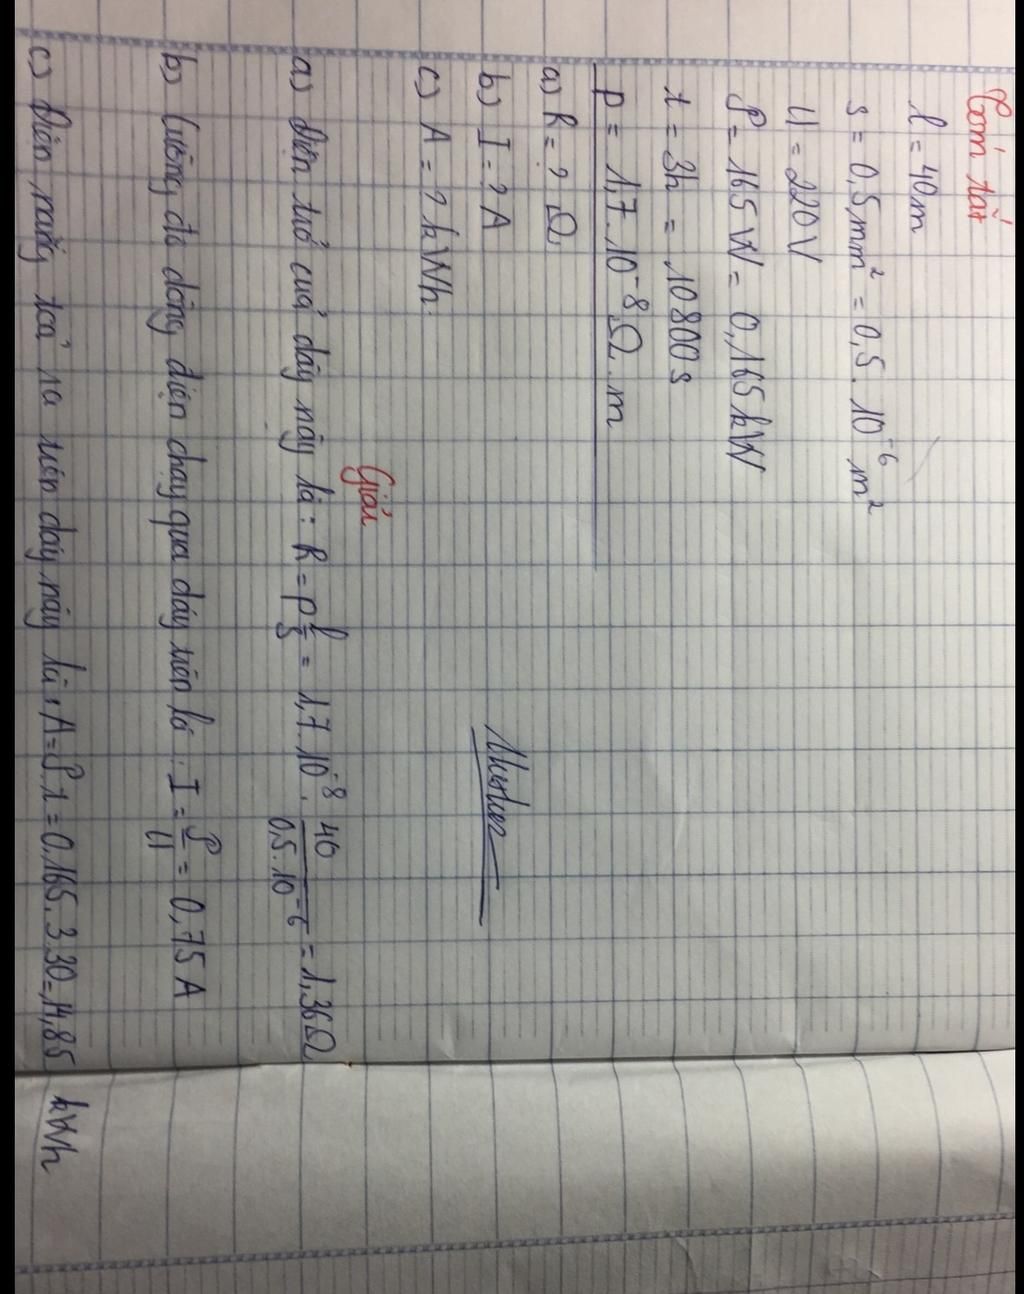 Tóm tắt
l = 40m
s = 0,5mm² = 0,5 . 10⁻⁶ m²
U = 220V
P = 165W = 0,165kW
t = 3h = 10800s
p = 1,7 . 10⁻⁸ Ω . m
a) R = ? Ω
b) I = ? A
c) A = ? kWh.
Giải
a) Điện trở của dây này là : R = p l/s = 1,7 . 10⁻⁸ . 40/0,5.10⁻⁶ = 1,36Ω
b) Cường độ dòng điện chạy qua dây trên là : I = P/U = 0,75 A
c) Điện năng toả ra trên dây này là : A = P.t = 0,165 . 3.30 = 14,85 kWh